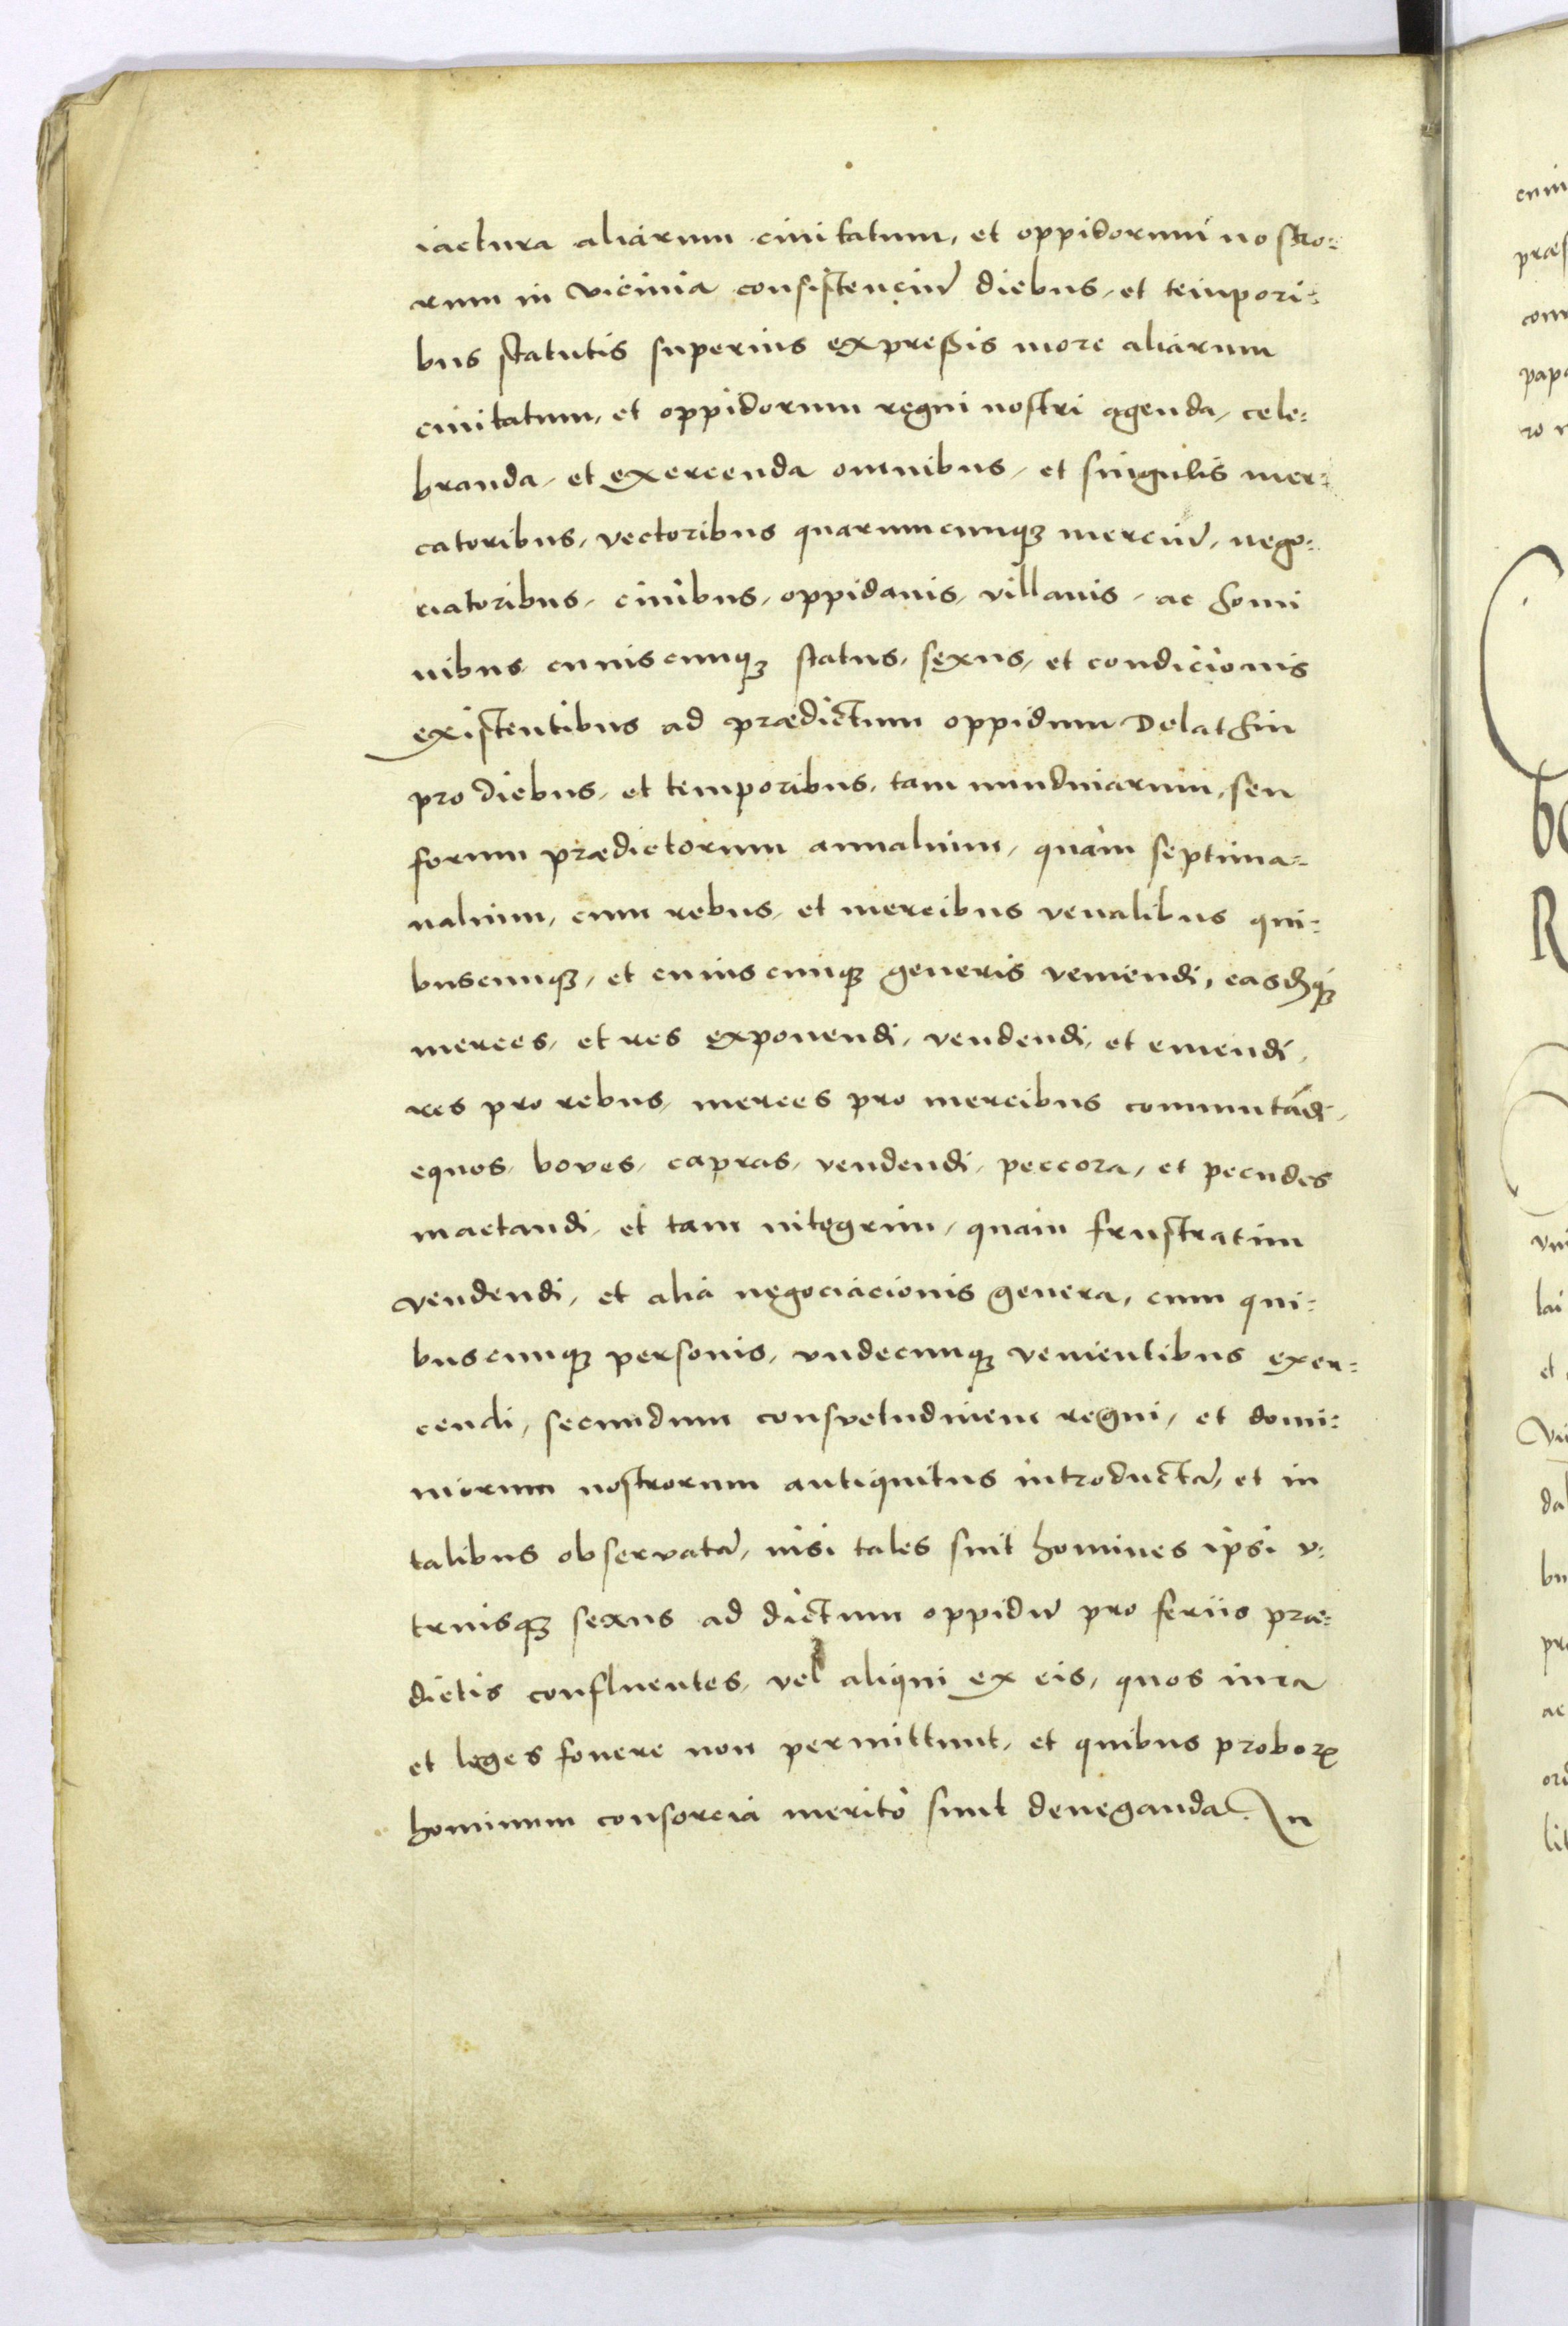 iactura aliarum ciuitatum, et oppidorum nostro:
rum in vicinia consistenciũ diebus, et tempori:
bus statutis superius expreßis more aliarum
ciuitatum, et oppidorum regni nostri agenda, cele:
branda, et exercenda omnibus, et singulis mer:
catoribus, vectoribus quarumcunqꝫ merciũ, nego:
ciatoribus, ciuibus, oppidanis, villanis, ac homi
nibus cuiuscunqꝫ status, sexus, et condicionis
existentibus ad prædictum oppidum Delathin
pro diebus, et temporibus, tam nundinarum, seu
forum prædictorum annalium, quàm septima:
nalium, cum rebus, et mercibus venalibus qui:
buscunqꝫ, et cuiuscunqꝫ generis veniendi, easdẽqꝫ
merces, et res exponendi, vendendi, et emendi,
res pro rebus, merces pro mercibus commutãdi,
equos, boves, capras, vendendi, peccora, et pecudes
mactandi, et tam integrim, quàm frustratim
vendendi, et alia negociacionis genera, cum qui:
buscunqꝫ personis, vndecunqꝫ venientibus exer:
cendi, secundum consvetudinem regni, et domi:
niorum nostrorum antiquitus introductã, et in
talibus observatã, nisi tales sint homines ipsi v:
triusqꝫ sexus ad dictum oppidũ pro feriis præ:
dictis confluentes, vel aliqui ex eis, quos iura
et leges fovere non permittunt, et quibus proborꝝ
hominum consorcia meritò sunt deneganda. In